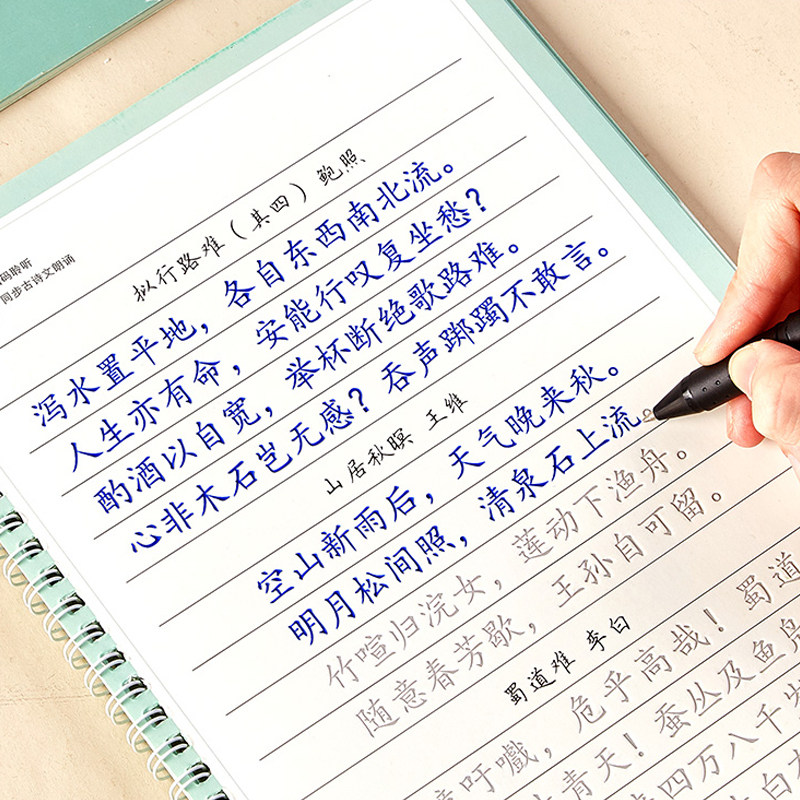 码聆听
同步古诗文朗诵
拟行路难（其四）鲍照
泻水置平地，各自东西南北流。
人生亦有命，安能行叹复坐愁？
酌酒以自宽，举杯断绝歌路难。
心非木石岂无感？吞声踯躅不敢言。
山居秋暝 王维
空山新雨后，天气晚来秋。
明月松间照，清泉石上流。
竹喧归浣女，莲动下渔舟。
随意春芳歇，王孙自可留。
蜀道难 李白
吁嚱，危乎高哉！蜀道
青天！蚕丛及鱼凫
四万八千岁